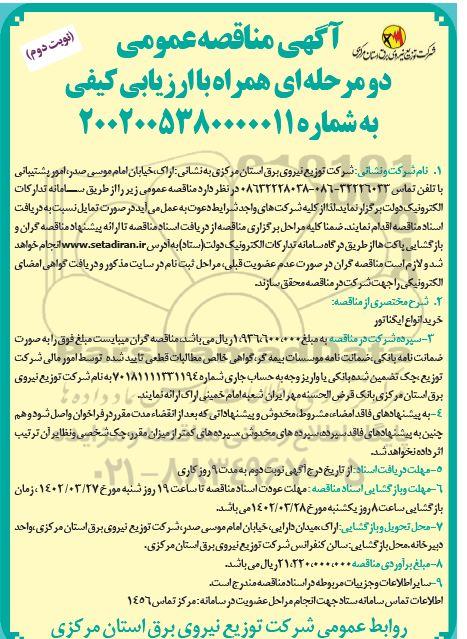 شرکت توزیع نیروی برق استان مرکزی
(نوبت دوم)
آگهی مناقصه عمومی
دو مرحله ای همراه با ارزیابی کیفی
به شماره ۲۰۰۲۰۰۵۳۸۰۰۰۰۰۱۱
۱. نام شرکت و نشانی: شرکت توزیع نیروی برق استان مرکزی به نشانی: اراک، خیابان امام موسی صدر، امور پشتیبانی
با تلفن تماس ۳۲۲۲۶۰۳۳-۰۸۶-۰۸۶۳۲۲۲۸۰۳۸ در نظر دارد مناقصه عمومی زیر را از طریق سامانه تدارکات
الکترونیک دولت برگزار نماید. لذا از کلیه شرکت های واجد شرایط دعوت به عمل می آید در صورت تمایل نسبت به دریافت
اسناد مناقصه اقدام نمایند. ضمنا کلیه مراحل برگزاری مناقصه از دریافت اسناد مناقصه تا ارائه پیشنهاد مناقصه گران و
بازگشایی پاکت ها از طریق درگاه سامانه تدارکات الکترونیک دولت (ستاد) به آدرس www.setadiran.ir انجام خواهد
شد و لازم است مناقصه گران در صورت عدم عضویت قبلی، مراحل ثبت نام در سایت مذکور و دریافت گواهی امضای
الکترونیکی را جهت شرکت در مناقصه محقق سازند.
۲. شرح مختصری از مناقصه:
خرید انواع ایگناتور
۳-سپرده شرکت در مناقصه به مبلغ ۱,۹۳۶,۶۰۰,۰۰۰ ریال می باشد، مناقصه گران میبایست مبلغ فوق را به صورت
ضمانت نامه بانکی، ضمانت نامه موسسات بیمه گر، گواهی خالص مطالبات قطعی تایید شده توسط امور مالی شرکت
توزیع، چک تضمین شده بانکی یا واریز وجه به حساب جاری شماره ۷۰۱۸۱۱۱۱۳۳۱۱۹۴ به نام شرکت توزیع نیروی
برق استان مرکزی بانک قرض الحسنه مهر ایران شعبه امام خمینی اراک ارائه نمایند.
۴-به پیشنهادهای فاقد امضاء، مشروط، مخدوش و پیشنهاداتی که بعد از انقضاء مدت مقرر در فراخوان واصل شود و هم
چنین به پیشنهادهای فاقد سپرده، سپرده های مخدوش، سپرده های کمتر از میزان مقرر، چک شخصی و نظایر آن ترتیب
اثر داده نخواهد شد.
۵-مهلت دریافت اسناد: از تاریخ درج آگهی نوبت دوم به مدت ۹ روز کاری
۶-مهلت و بازگشایی اسناد مناقصه: مهلت عودت اسناد مناقصه تا ساعت ۱۹ روز شنبه مورخ ۱۴۰۲/۰۳/۲۷، زمان
بازگشایی ساعت ۸ روز یکشنبه مورخ ۱۴۰۲/۰۳/۲۸ می باشد.
۷-محل تحویل و بازگشایی: اراک، میدان دارایی، خیابان امام موسی صدر، شرکت توزیع نیروی برق استان مرکزی، واحد
دبیرخانه، محل بازگشایی: سالن کنفرانس شرکت توزیع نیروی برق استان مرکزی.
۸-مبلغ برآوردی مناقصه ۲۱,۲۲۰,۰۰۰,۰۰۰ ریال می باشد.
۹-سایر اطلاعات و جزییات مربوطه در اسناد مناقصه مندرج است.
اطلاعات تماس سامانه ستاد جهت انجام مراحل عضویت در سامانه: مرکز تماس ۱۴۵۶
روابط عمومی شرکت توزیع نیروی برق استان مرکزی
۰۲۱-۸۸۳۴۹۶۷۰-۵